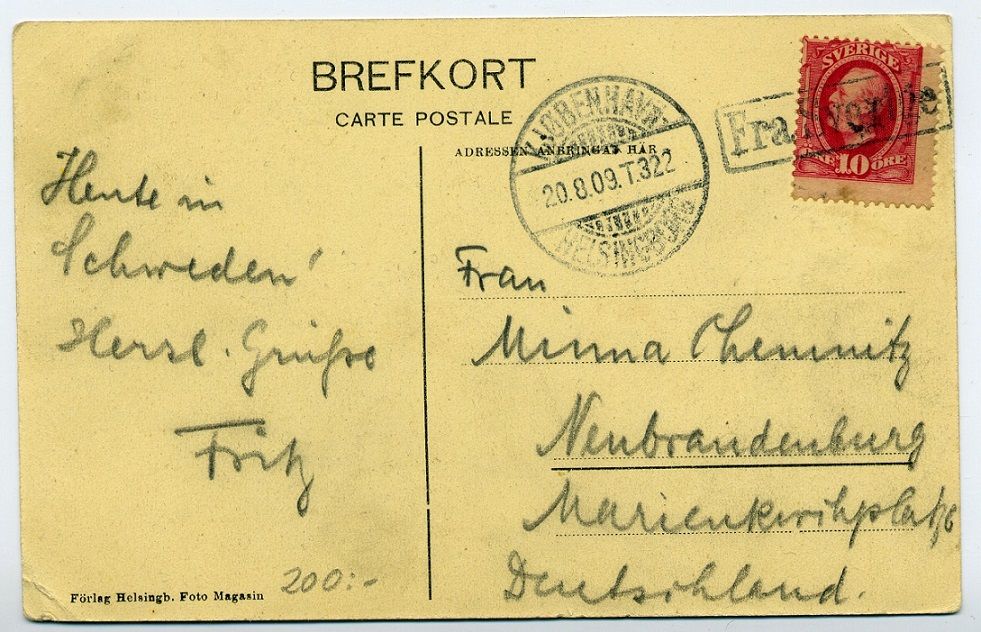 BREFKORT
CARTE POSTALE
ADRESSEN ANBRINGAS HÄR
KJØBENHAVN-
20.8.09.T.322
HELSINGBORG
Fra Sverige
SVERIGE
10 ÖRE
Heute in
Schweden!
Herzl. Grüße
Fritz
Frau
Minna Chemnitz
Neubrandenburg
Marienkirchplatz 6
Deutschland.
200:-
Förlag Helsingb. Foto Magasin